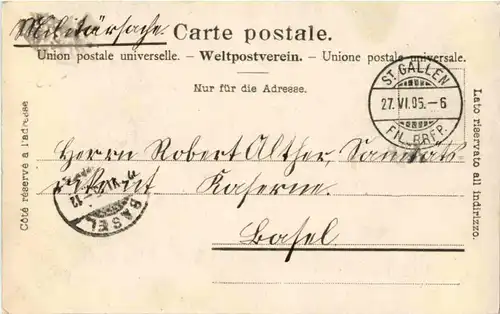 Militärsache. Carte postale.
Union postale universelle. – Weltpostverein. – Unione postale universale.
Nur für die Adresse.
Côté réservé à l'adresse
Lato riservato all indirizzo.
ST. GALLEN
27. VI. 05. – 6
FIL. BRFP.
Herrn Robert Alther, Sanitäts-
Kaserne.
Basel.
BASEL